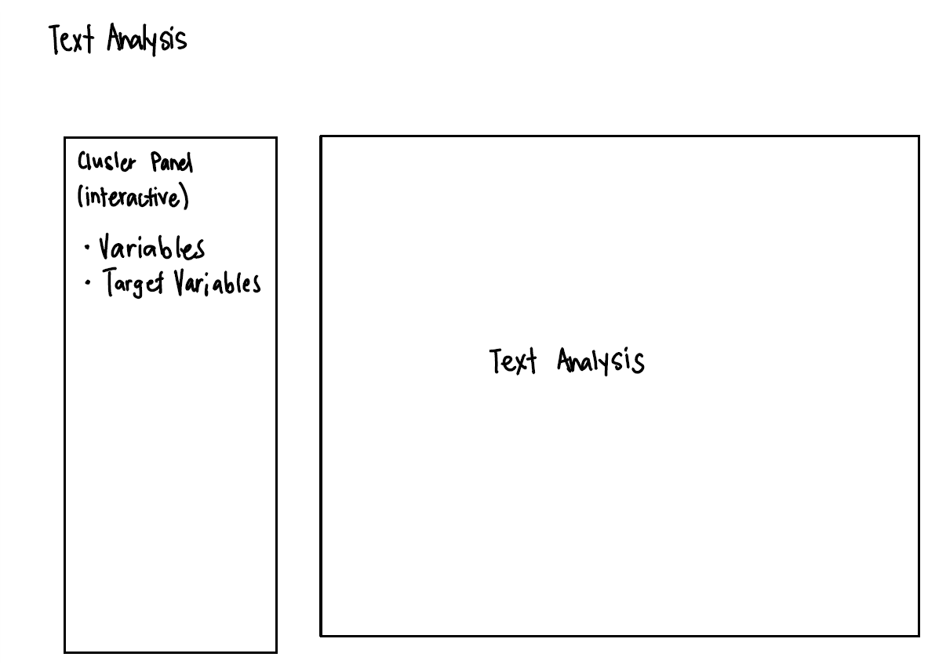 Text Analysis
Cluster Panel
(interactive)
· Variables
· Target Variables
Text Analysis